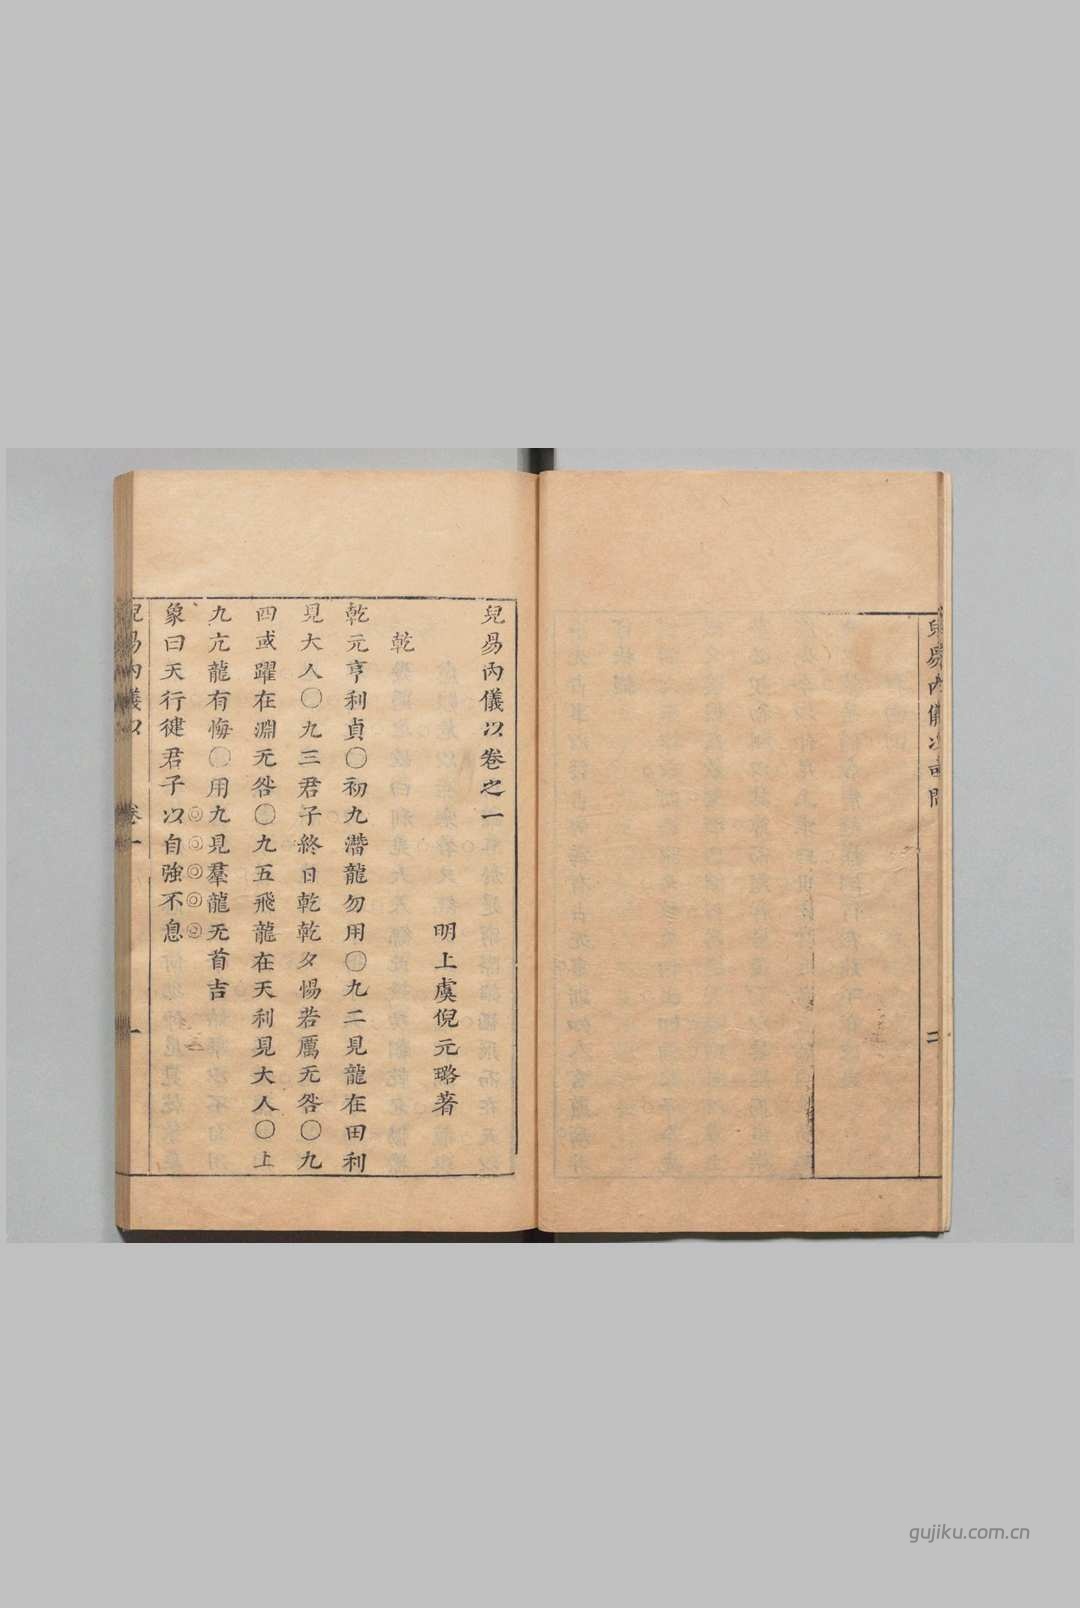 兒易內儀以或問
二
兒易內儀以卷之一
明上虞倪元璐著
乾
乾元亨利貞〇初九潛龍勿用〇九二見龍在田利
見大人〇九三君子終日乾乾夕惕若厲无咎〇九
四或躍在淵无咎〇九五飛龍在天利見大人〇上
九亢龍有悔〇用九見羣龍无首吉
象曰天行健君子以自強不息
兒易內儀以 卷一 一
gujiku.com.cn